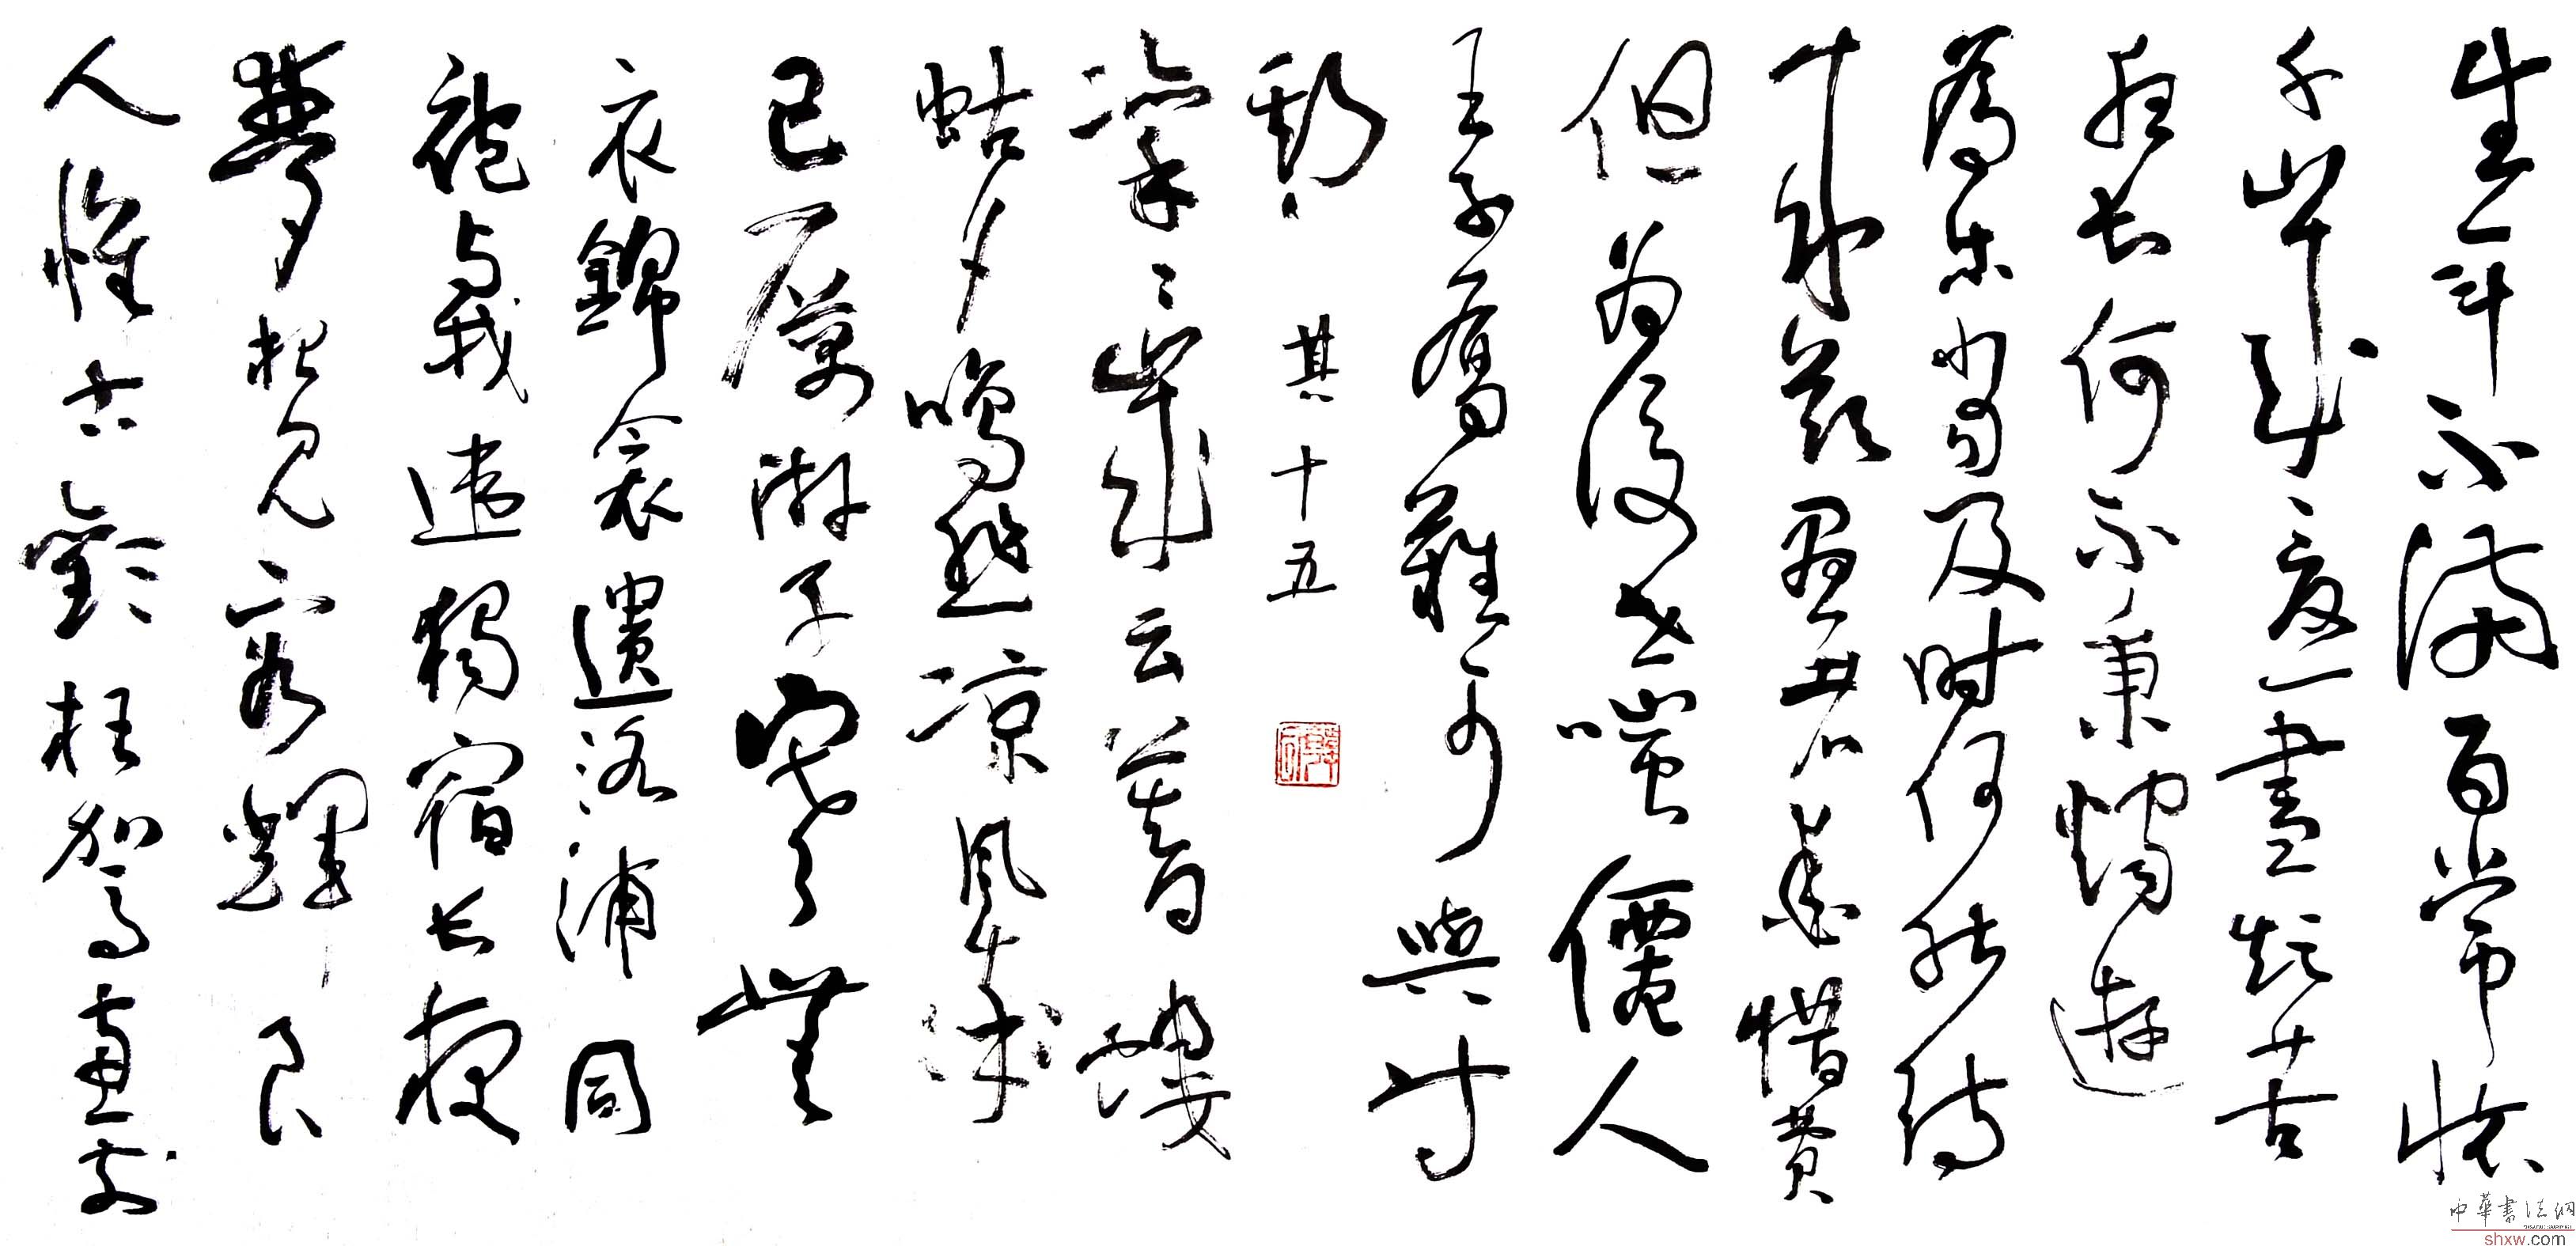 生年不滿百常懷
千歲憂晝短苦
夜长何不秉燭遊
為樂當及时何能待
来兹愚者愛惜費
但为後世嗤僊人
王子喬難可與等
期 其十五
凛〻歲云暮螻
蛄夕鳴悲凉风率
已厲游子寒無
衣錦衾遺洛浦同
袍与我違獨宿长夜
夢想見容輝良
人惟古歡枉駕惠前
中華書法網
shxw.com